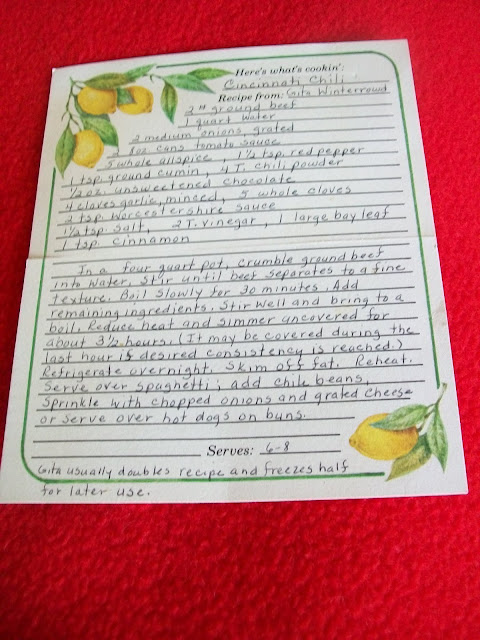 Here's what's cookin':
Cincinnati Chili
Recipe from: Gita Winterrowd
2# ground beef
1 quart water
2 medium onions, grated
2 8oz cans tomato sauce
5 whole allspice, 1½ tsp. red pepper
1 tsp. ground cumin, 4 T. chili powder
½ oz. unsweetened chocolate
4 cloves garlic, minced, 5 whole cloves
2 tsp. Worcestershire sauce
1½ tsp. salt, 2 T. vinegar, 1 large bay leaf
1 tsp. cinnamon
In a four quart pot, crumble ground beef
into water. Stir until beef separates to a fine
texture. Boil slowly for 30 minutes. Add
remaining ingredients. Stir well and bring to a
boil. Reduce heat and simmer uncovered for
about 3½ hours. (It may be covered during the
last hour if desired consistency is reached.)
Refrigerate overnight. Skim off fat. Reheat.
Serve over spaghetti; add chili beans,
sprinkle with chopped onions and grated cheese
or serve over hot dogs on buns.
Serves: 6-8
Gita usually doubles recipe and freezes half
for later use.